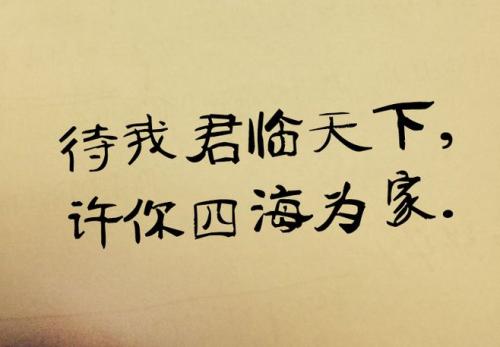 待我君临天下,
许你四海为家.